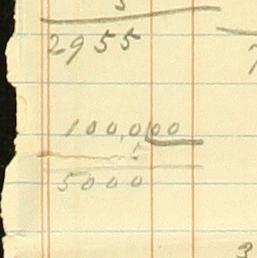 5
2955
7
100,000
5
5000
3